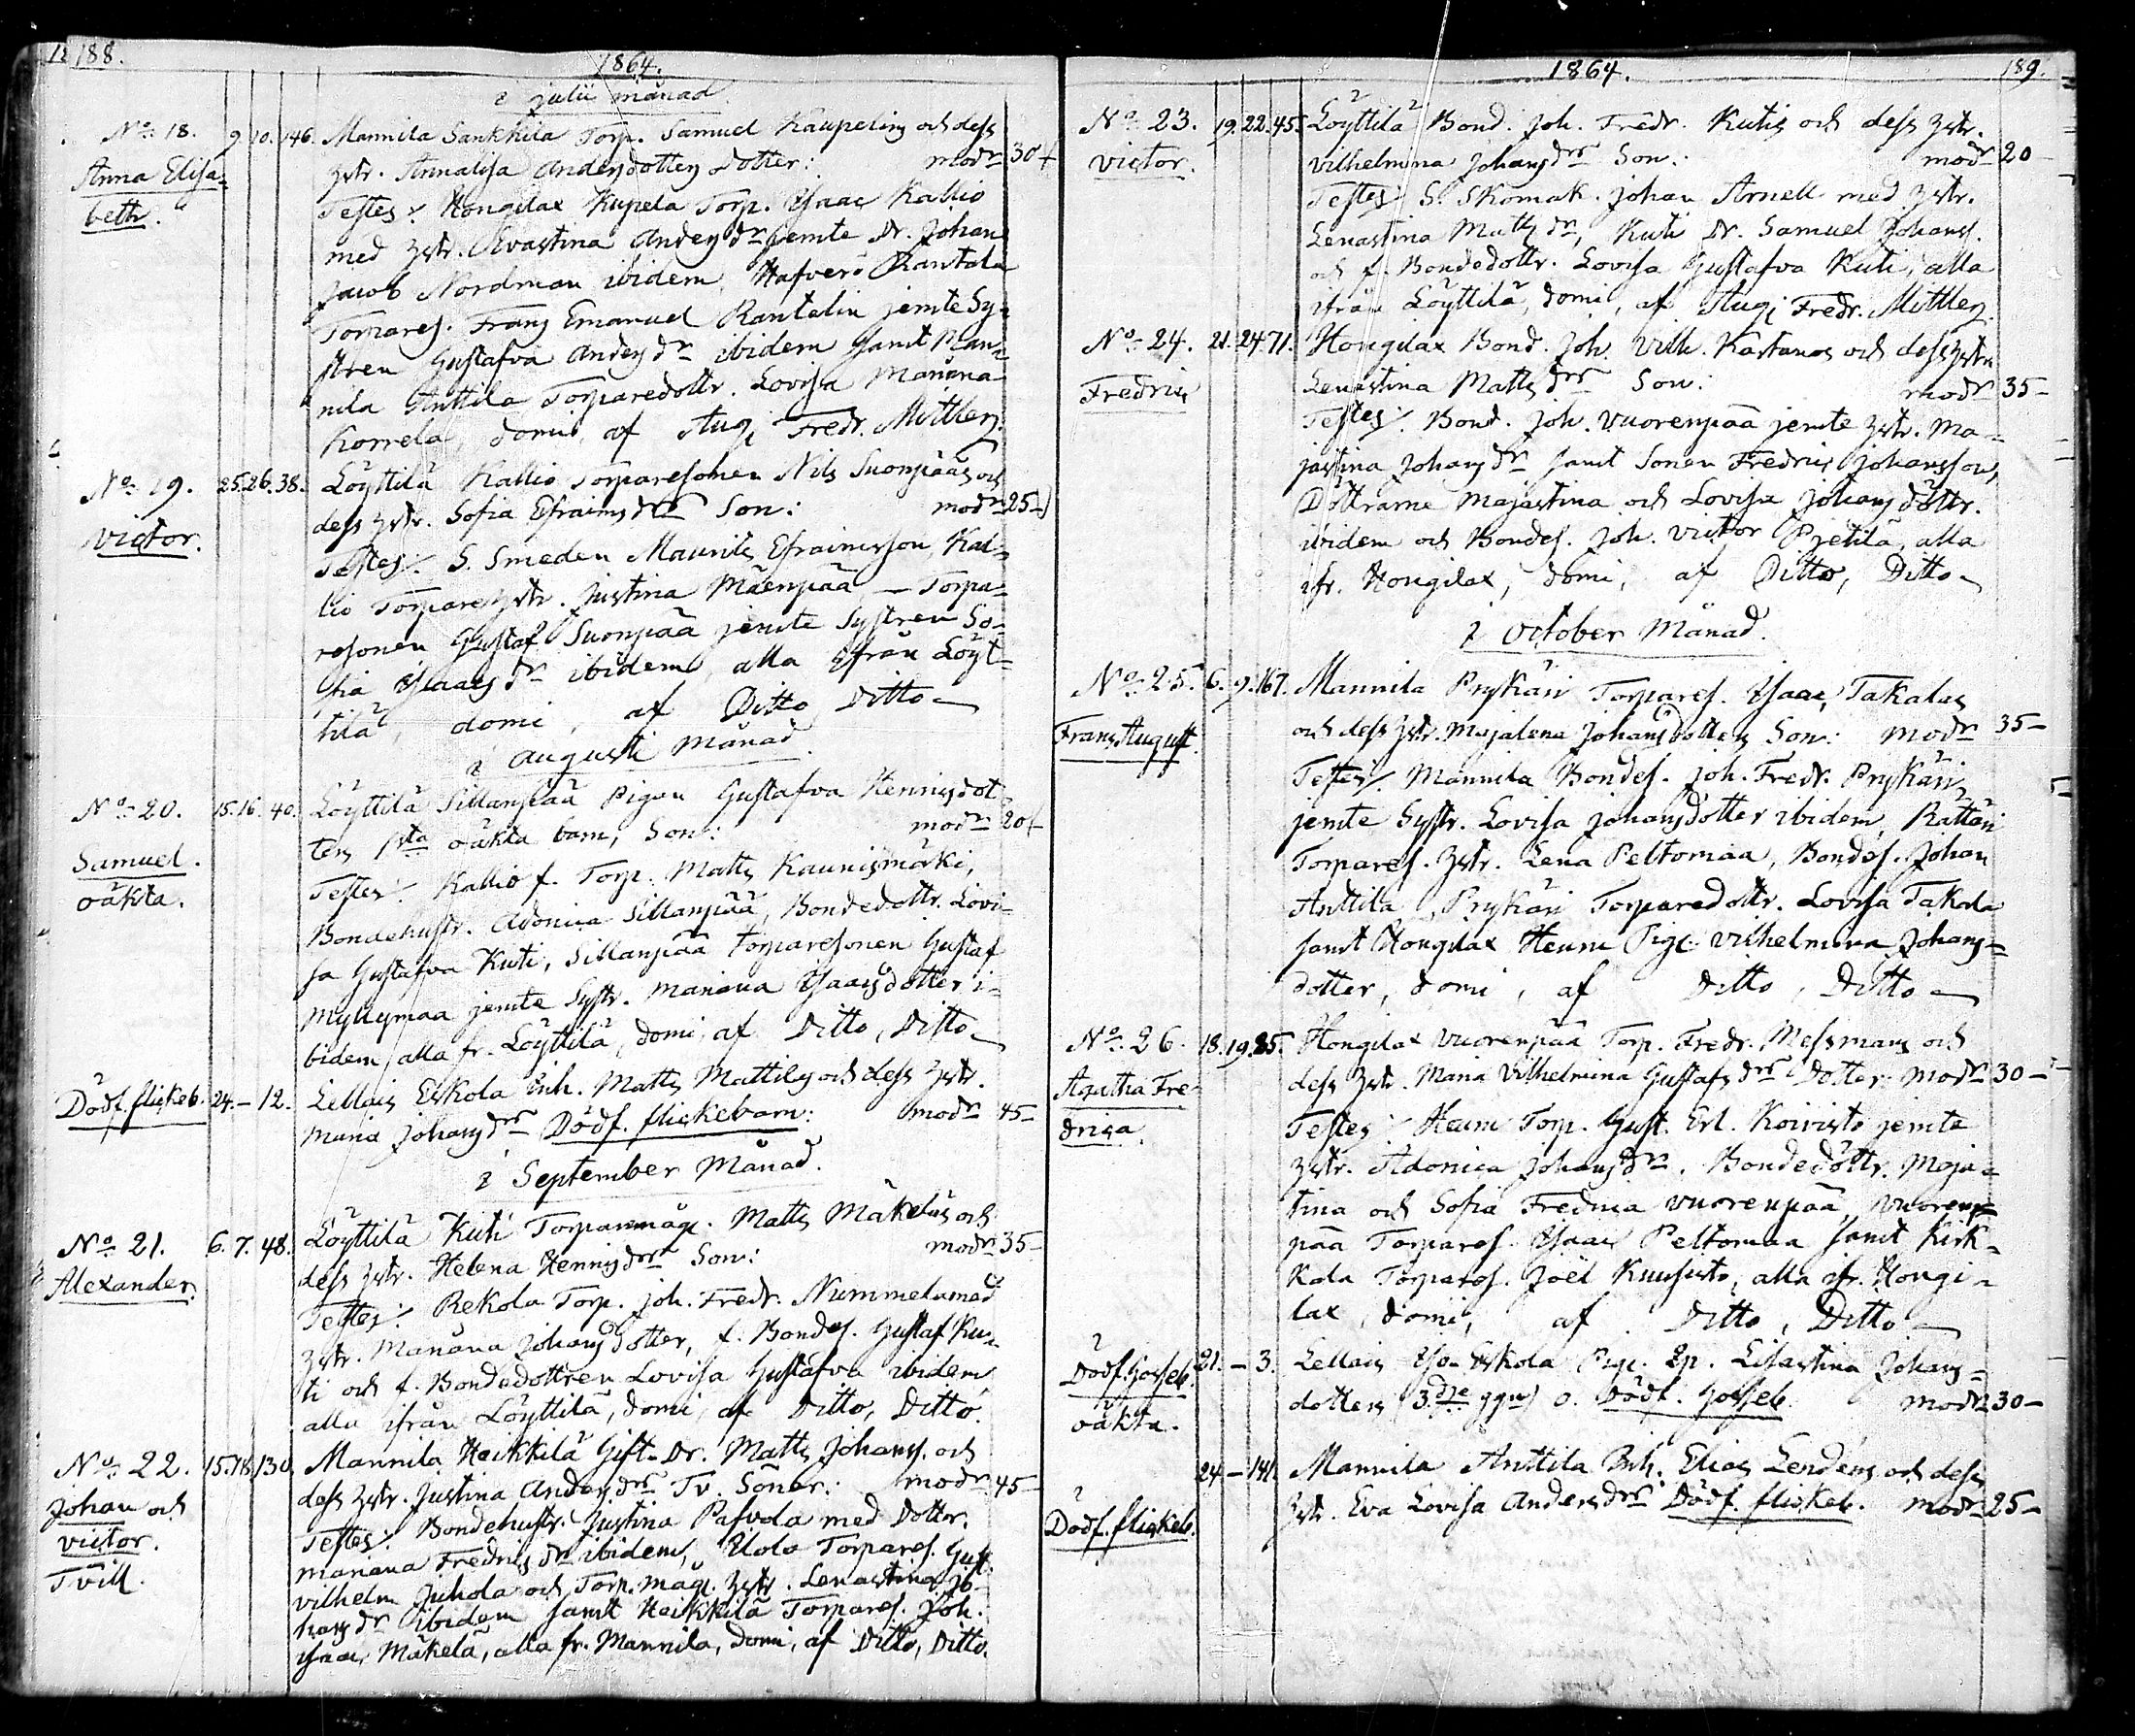 188.
1864.
i julii månad.
No 18. 9. 10. 146. Mannila Sankkila Torp. Samuel Kaupelins och dess
Anna Elisa- hstr. Annalisa Andersdotters Dotter: modr 30
beth. Testes: Hongilax Kupela Torp. Isaac Kallio
med hstr. Evastina Andersdr jemte Dr. Johan
Jacob Nordman ibidem, Hafverö Rantala
Torpares. Frans Emanuel Rantalin jemte Sy-
stren Gustafva Andersdr ibidem samt Man-
nila Anttila Torparedottr. Lovisa Mariana
Korrela, domi, af Augi Fredr. Mittler.
No 19. 25. 26. 38. Löyttilä Kallio Torparesonen Nils Suonpääs och
Victor. dess hstr. Sofia Efraimsdrs Son: modr 25
Testes: S. Smeden Maurits Efraimsson, Kal-
lio Torparehstr. Justina Mäenpää — Torpa-
resonen Gustaf Suonpää jemte Systren So-
fia Isaacsdr ibidem, alla ifrån Löyt-
tilä, domi, af Ditto Ditto
i Augusti månad.
No 20. 15. 16. 40. Löyttilä Sillanpää Pigan Gustafva Henricsdot-
Samuel. ters 1sta oäkta barn, Son: modr 20
oäkta. Testes: Kallio f. Torp. Matts Kaunismäki,
Bondehustr. Adonica Sillanpää, Bondedottr. Lovi-
sa Gustafva Kuti, Sillanpää torparesonen Gustaf
Myllymaa jemte Systr. Mariana Isaacsdotter i-
bidem, alla fr. Löyttilä, domi, af Ditto, Ditto
Dödf. flickeb. 24. — 12. Lellais Eskola Inh. Matts Mattilas och dess hstr.
Maria Johansdrs Dödf. flickebarn: modr 45-
i September Månad.
No 21. 6. 7. 48. Löyttilä Kuti Torparemåg. Matts Mäkeläs och
Alexander. dess hstr. Helena Henricsdrs Son: modr 35-
Testes: Rekola Torp. Joh. Fredr. Nummela med
hstr. Mariana Johansdotter, f. Bondes. Gustaf Ku-
ti och f. Bondedottren Lovisa Gustafva ibidem,
alla ifrån Löyttilä, domi, af Ditto, Ditto.
No 22. 15. 18. 130. Mannila Heikkilä Gift-Dr. Matts Johanss. och
Johan och dess hstr. Justina Andersdrs Tv. Söner: modr 45-
Victor. Testes: Bondehustr. Justina Pafvola med Dottr.
Tvill. Mariana Fredricsdr ibidem, Uola Torpares. Gust.
Vilhelm Juhola och Torp. måg. hstr. Lenastina Jo-
hansdr ibidem samt Heikkilä Torpares. Joh.
Isaac Mäkelä, alla fr. Mannila, domi, af Ditto, Ditto.
1864.
189.
No 23. 19. 22. 45. Löyttilä Bond. Joh. Fredr. Kutis och dess hstr.
Victor. Vilhelmina Johansdrs Son: modr 20-
Testes: S. Skomak. Johan Arnell med hstr.
Lenastina Mattsdr, Kuti Dr. Samuel Johanss.
och f. Bondedottr. Lovisa Gustafva Kuti, alla
ifrån Löyttilä, domi, af Augi Fredr. Mittler.
No 24. 21. 24. 71. Hongilax Bond. Joh. Vilh. Kastanas och dess hstrs
Fredric Lenastina Mattsdrs Son: modr 35-
Testes: Bond. Joh. Vuorenpää jemte hstr. Ma-
jastina Johansdr samt Sonen Fredric Johansson,
Döttrarne Majastina och Lovisa Johansdöttr.
ibidem och Bondes. Joh. Victor Pjetilä, alla
ifr. Hongilax, domi, af Ditto, Ditto
i October Månad.
No 25. 6. 9. 167. Mannila Prykäri Torpares. Isaac Takalas
Frans August. och dess hstr. Majalena Johansdotters Son: modr 35-
Testes: Mannila Bondes. Joh. Fredr. Prykäri,
jemte Systr. Lovisa Johansdotter ibidem, Rättäri
Torpares. hstr. Lena Peltomaa, Bondes. Johan
Anttila, Prykäri Torparedottr. Lovisa Takala
samt Hongilax Heurn Pig. Vilhelmina Johans-
dotter, domi, af Ditto, Ditto
No 26. 18. 19. 85. Hongilax Vuorenpää Torp. Fredr. Messmans och
Agatha Fre- dess hstr. Maria Vilhelmina Gustafsdrs Dotter: modr 30-
drica. Testes: Heurn Torp. Gust. Erl. Koivisto jemte
hstr. Adonica Johansdr. Bondedöttr. Maja-
tina och Sofia Fredrica Vuorenpää, Vuoren-
pää Torpares. Isaac Peltomaa samt Kirk-
kola Torpares. Joël Kuusisto, alla ifr. Hongi-
lax, domi, af Ditto, Ditto
Dödf. Gosseb. 21. — 3. Lellais Iso-Eskola Pig. Lisastina Johans-
oäkta. dotters (3dje ggn) o. Dödf. gosseb. modr 30-
24 — 141. Mannila Anttila Inh. Elias Lendens och dess
Dödf. flickeb. hstr. Eva Lovisa Andersdrs Dödf. flickeb. modr 25-